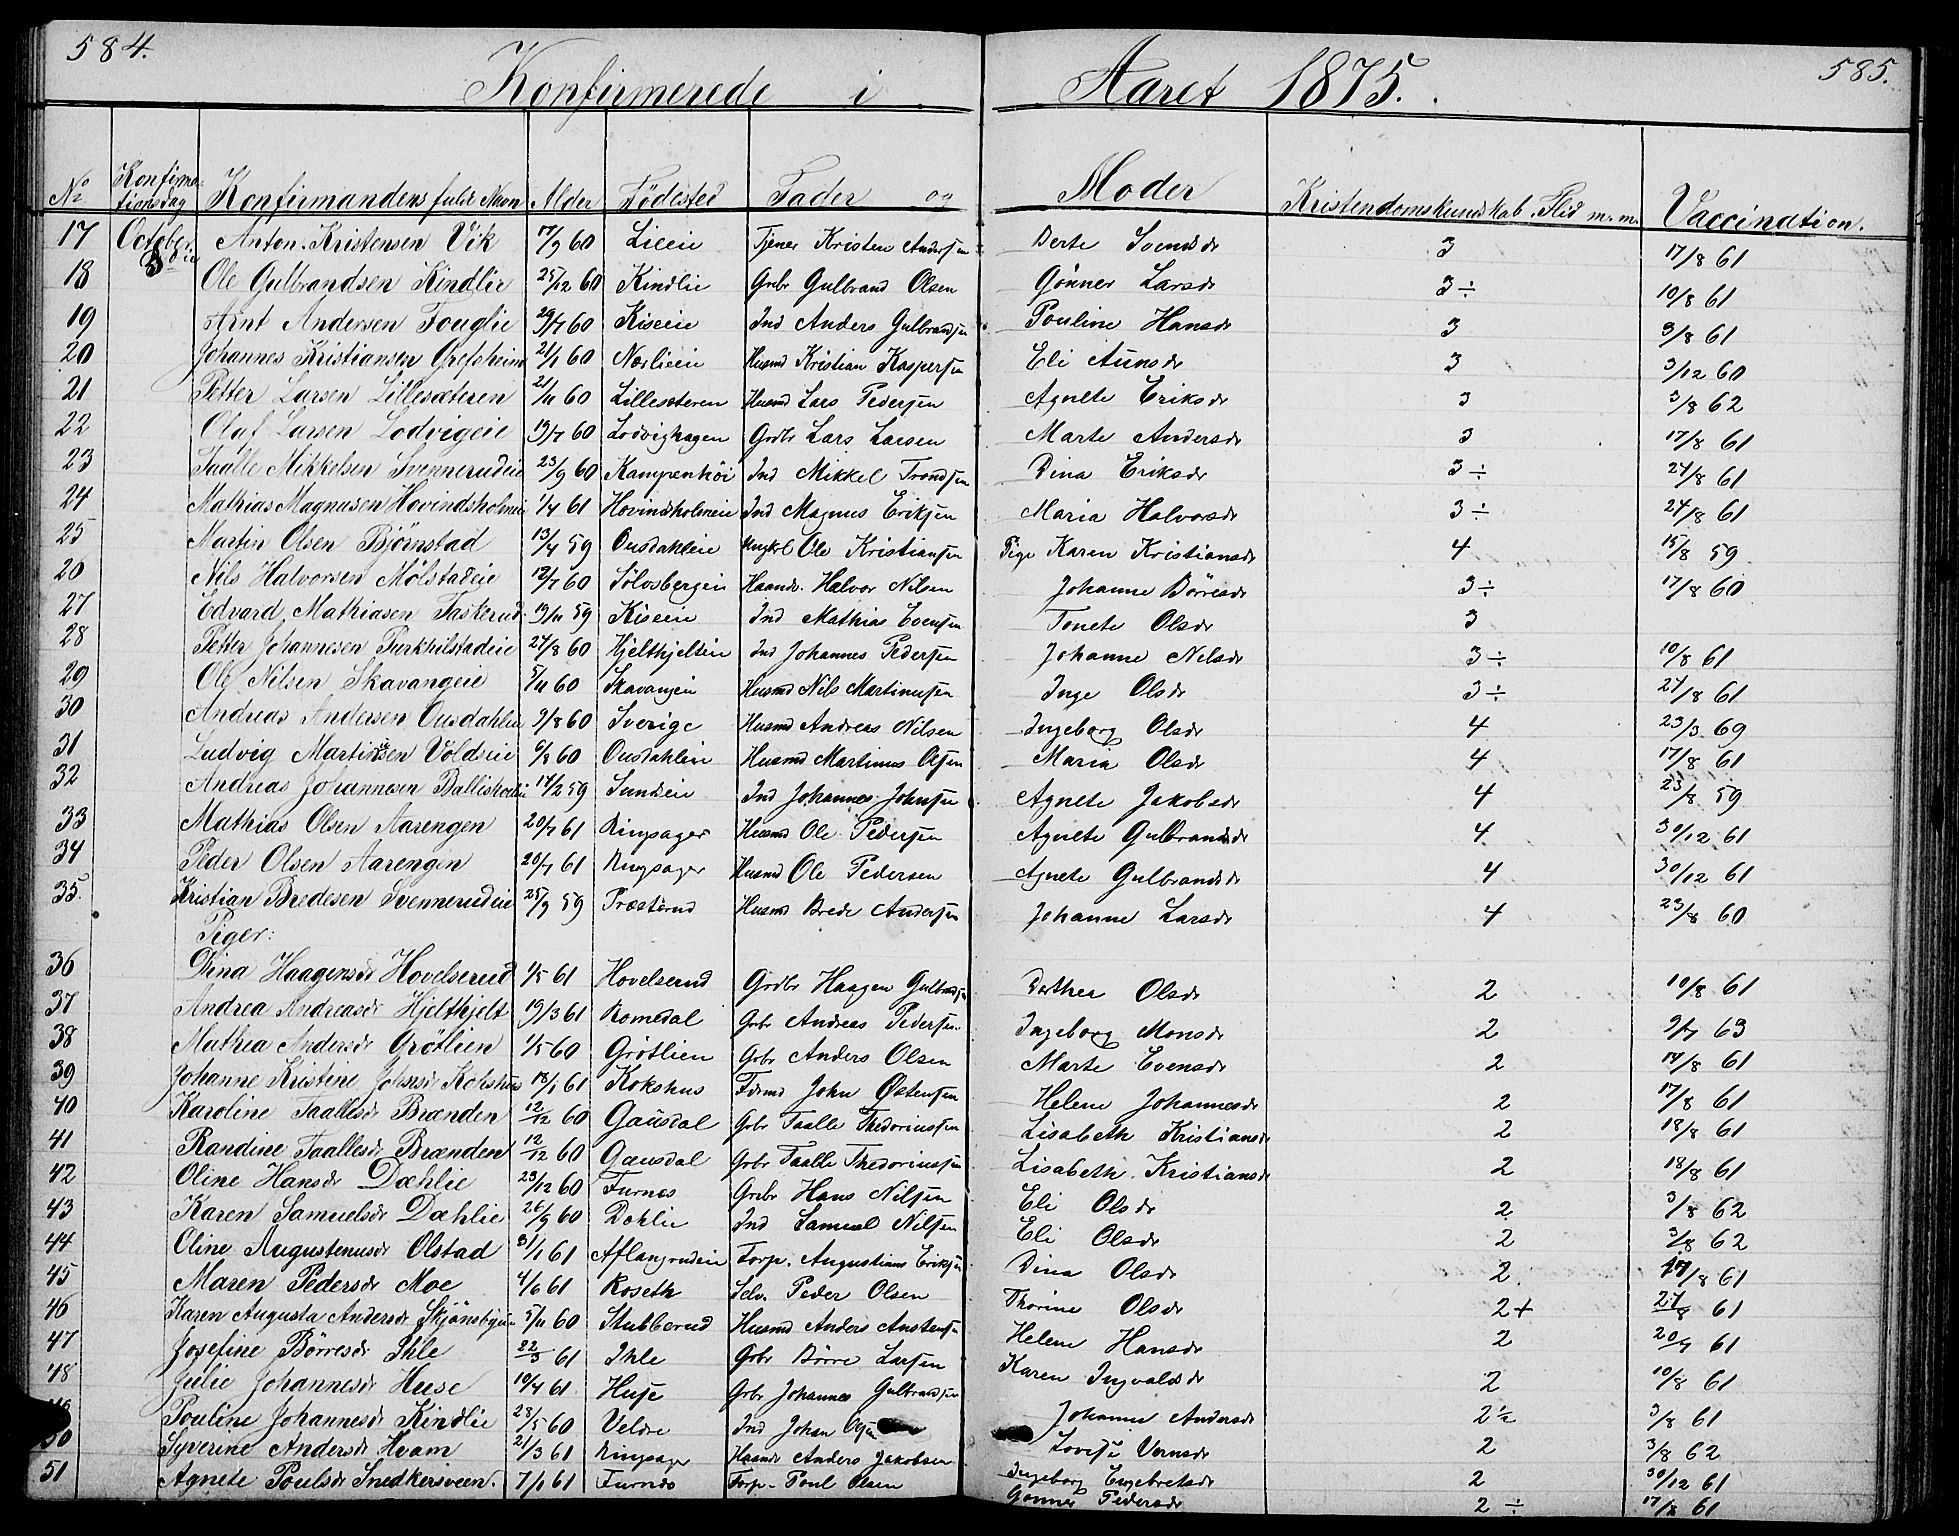 584.
585.
Konfirmerede i Aaret 1875.
No Konfirmationsdag Konfirmandens fulde Navn Alder Födested Fader og Moder Kristendomskundskab, Flid m. m. Vaccination.
17 October Anton Kristensen Vik 17/9 60 Lieeie Tjener Kristen Andersen Berte Svendsdr 3 17/8 61
18 Ole Gulbrandsen Kindlie 25/12 60 Kindlie Grbr Gulbrand Olsen Gönner Larsdr 3 ÷ 10/8 61
19 Arnt Andersen Fouglie 29/7 60 Kiseie Ind Anders Gulbrandsen Pouline Hansdr 3 3/8 61
20 Johannes Kristiansen Grefsheim 21/1 60 Nerlieeie Husmd Kristian Kaspersen Eli Aunsdr 3 3/12 60
21 Petter Larsen Lillesæteren 21/11 60 Lillesæteren Husmd Lars Pedersen Agnete Eriksdr 3 3/8 62
22 Olaf Larsen Lodvigeie 19/7 60 Lodvighagen Grdbr Lars Larsen Marte Andersdr 3 17/8 61
23 Taalle Mikkelsen Svennerudeie 23/9 60 Kampenhöi Ind Mikkel Trondsen Dina Eriksdr 3 ÷ 24/8 61
24 Mathias Magnusen Hovindsholmeie 1/4 61 Hovindsholmeie Ind Magnus Eriksen Maria Halvorsdr 3 ÷ 24/8 61
25 Martin Olsen Bjørnstad 13/4 59 Ousdahleie Ungkrl Ole Kristiansen Pige Karen Kristiansdr 4 15/8 59
20 Nils Halvorsen Mølstadeie 12/7 60 Sölvsbergeie Haandv. Halvor Nilsen Johanne Börresdr 3 ÷ 17/8 60
27 Edvard Mathiasen Taskerud 19/11 59 Kiseie Ind Mathias Evensen Tonete Olsdr 3
28 Petter Johannesen Purkhilstadeie 24/8 60 Hjelthjelteie Ind Johannes Pedersen Johanne Nilsdr 3 ÷ 10/8 61
29 Ole Nilsen Skavangeie 5/11 60 Skavangeie Husmd Nils Martinusen Inge Olsdr 3 ÷ 24/8 61
30 Andreas Andersen Ousdahleie 9/8 60 Sverige Husmd Andreas Nilsen Ingeborg Olsdr 4 23/3 69
31 Ludvig Martinsen Voldeie 6/3 60 Ousdahleie Husmd Martinus Olsen Maria Olsdr 4 17/8 61
32 Andreas Johannesen Ballishoeleie 14/2 59 Sundeie Ind Johannes Johnsen Agnete Jakobsdr 4 23/8 59
33 Mathias Olsen Aarengen 20/7 61 Ringsager Husmd Ole Pedersen Agnete Gulbrandsdr 4 30/12 61
34 Peder Olsen Aarengen 20/7 61 Ringsager Husmd Ole Pedersen Agnete Gulbrandsdr 4 30/12 61
35. Kristian Bredesen Svennerudeie 25/9 59 Præsterud Husmd Brede Andersen Johanne Larsdr 4 23/8 60
Piger:
36 Dina Haagensdr Hovelserud 1/5 61 Hovelserud Grdbr Haagen Gulbrandsen Dorthea Olsdr 2 10/8 61
37 Andrea Andreasdr Hjelthjelt 19/3 61 Romedal Grbr Andreas Pedersen Ingeborg Monsdr 2 9/7 63
38 Mathea Andersdr Grötlien 1/5 60 Grötlien Grbr Anders Olsen Marte Evensdr 2 14/8 61
39 Johanne Kristene Johnsdr Kokshus 18/1 61 Kokshus Fdrmd John Östensen Helene Johannesdr 2 17/8 61
40 Karoline Taallesdr Brænden 12/12 60 Gausdal Grbr Taalle Thedoriussen Lisabeth Kristiansdr 2 18/8 61
41 Randine Taallesdr Brænden 12/12 60 Gausdal Grbr Taalle Thedoriussen Lisabeth Kristiansdr 2 18/8 61
42 Oline Hansdr Dæhlie 23/12 60 Furnes Grbr Hans Nilsen Eli Olsdr 2 3/8 62
43 Karen Samuelsdr Dæhlie 26/9 60 Dæhlie Ind Samuel Nilsen Eli Olsdr 2 3/8 62
44 Oline Augustenusdr Olstad 31/1 61 Aflangrudeie Forp. Augustinus Eriksen Dina Olsdr 2 17/8 61
45 Maren Pedersdr Moe 4/6 61 Roseth Selv. Peder Olsen Thorine Olsdr 2+ 27/8 61
46 Karen Augusta Andersdr Skjönsbyeie 5/11 60 Stubberud Husmd Anders Anstensen Helene Hansdr 2 20/7 61
47 Josefine Börresdr Ihle 22/3 61 Ihle Grbr Börre Larsen Karen Ingvaldsdr 2 10/8 61
48 Julie Johannesdr Huse 10/4 61 Huse Grbr Johannes Gulbrandsen Johanne Andersdr 2½ 3/8 61
Pouline Johannesdr Kindlie 28/5 60 Veldre Ind Johan Lovise Vernsdr 2 3/8 62
50 Syverine Andersdr Hvam 21/3 61 Ringsager Haandv Anders Jakobsen Ingeborg Engebretsdr 2 30/12 61
51 Agnete Poulsdr Snedkersveen. 7/1 61 Furnes Forp. Poul Olsen Gönner Pedersdr 2 ÷ 17/8 61